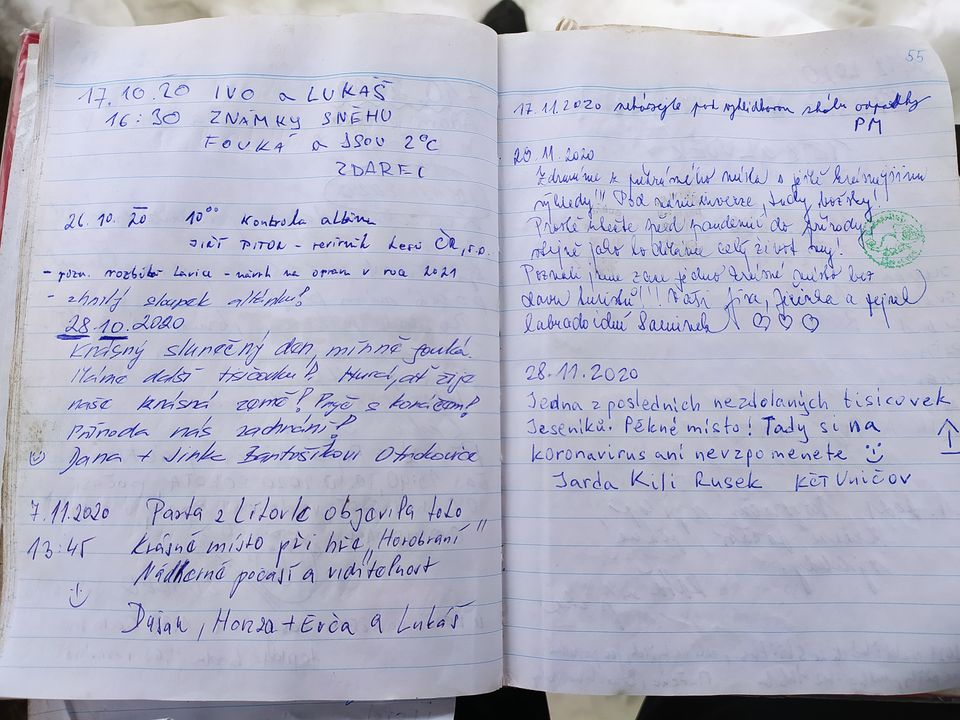 17.10.20 IVO a LUKAŠ
16:30 ZNÁMKY SNĚHU
FOUKÁ a JSOU 2°C
ZDAREC
26.10.20 10⁰⁰ Kontrola altánu
JIŘÍ - revírník Lesů ČR, s.p.
- pozn. rozbitá lavice - návrh na opravu v roce 2021
- zhnilý sloupek altánku!
28.10.2020
Krásný slunečný den, mírně fouká.
Máme další tisícovku! Hurá, ať žije
naše krásná země! Pryč s
Příroda nás zachrání!
☺ Dana + Jirka Otrokovice
7.11.2020 Parta z Litovle objevila toto
13:45 Krásné místo při hře „Horobraní"
Nádherné počasí a viditelnost
☺
Dušan, Honza + Evča a Lukáš
55
17.11.2020 neházejte pod skálu odpadky
PM
20.11.2020
Zdravíme z místa s ještě krásnějšími
výhledy!! Pod námi inverze, tady, !
Prostě před pandemií do přírody
jako to děláme celý život my!
Poznali jsme zase jedno krásné místo bez
davu turistů!!! Vaši Jíra, a
labradoidní ♡ ♡ ♡
28.11.2020
Jedna z posledních nezdolaných tisícovek
Jeseníků. Pěkné místo! Tady si na
koronavirus ani nevzpomenete ☺
Jarda Kili Rusek KČT Uničov